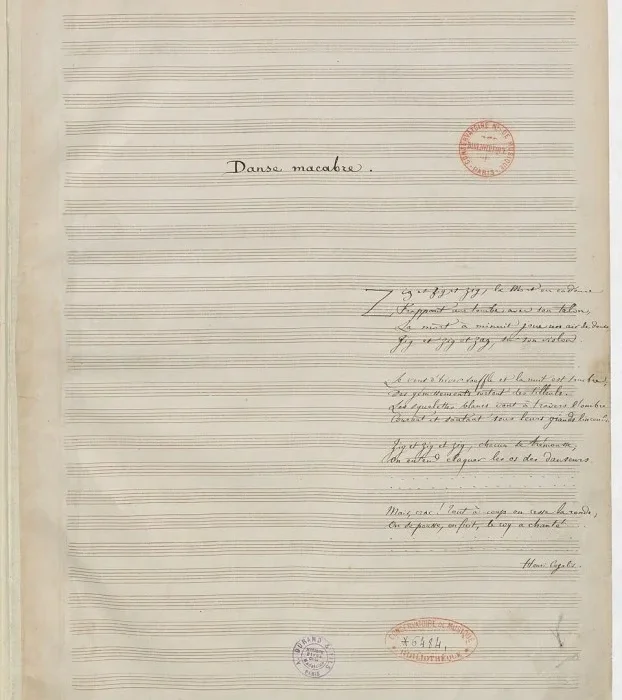 CONSERVATOIRE Nal DE MUSIQUE
BIBLIOTHÈQUE
PARIS
Danse macabre.
Zig et zig et zig, la Mort en cadence
Frappant une tombe avec son talon,
La mort à minuit joue un air de danse
Zig et zig et zag, sur son violon.
Le vent d'hiver souffle et la nuit est sombre;
Des gémissements sortent des tilleuls.
Les squelettes blancs vont à travers l'ombre
Courant et sautant sous leurs grands linceuls.
Zig et zig et zig, chacun se trémousse,
On entend claquer les os des danseurs
Mais, crac! tout à coup on cesse la ronde,
On se pousse, on fuit, le coq a chanté
Henri Cazalis.
CONSERVATOIRE DE MUSIQUE
*6484.
BIBLIOTHÈQUE
A. DURAND & FILS
PARIS